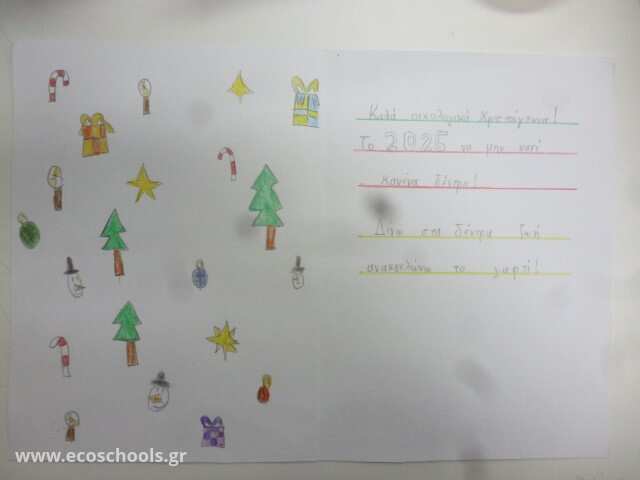 Καλά οικολογικά Χριστούγεννα!
Το 2025 να μην καεί
κανένα δέντρο!
Δίνω στα δέντρα ζωή
ανακυκλώνω το χαρτί!
www.ecoschools.gr